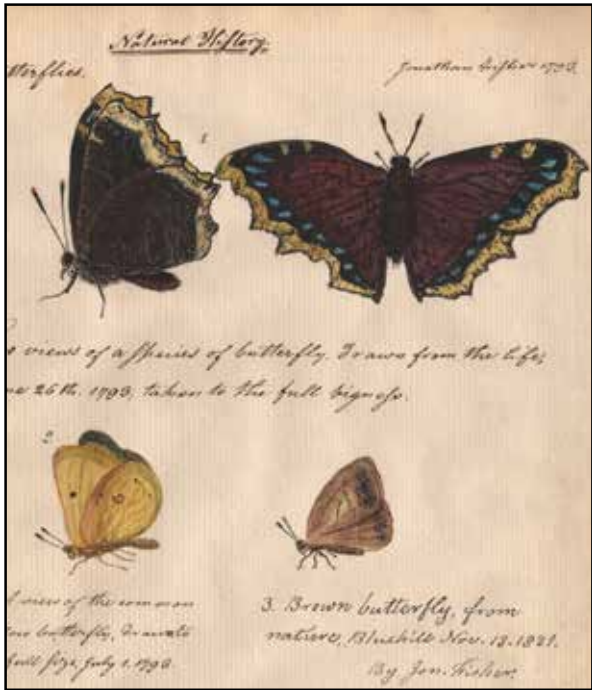 Natural History.
tterflies.
Jonathan Fisher 1793.
1
s views of a species of butterfly. Drawn from the life,
ne 26th. 1793, taken to the full bigness.
2.
t view of the common
low butterfly, drawn to
full size, July 1. 1793.
3. Brown butterfly, from
nature, Bluehill Nov. 13. 1821.
By Jon. Fisher.